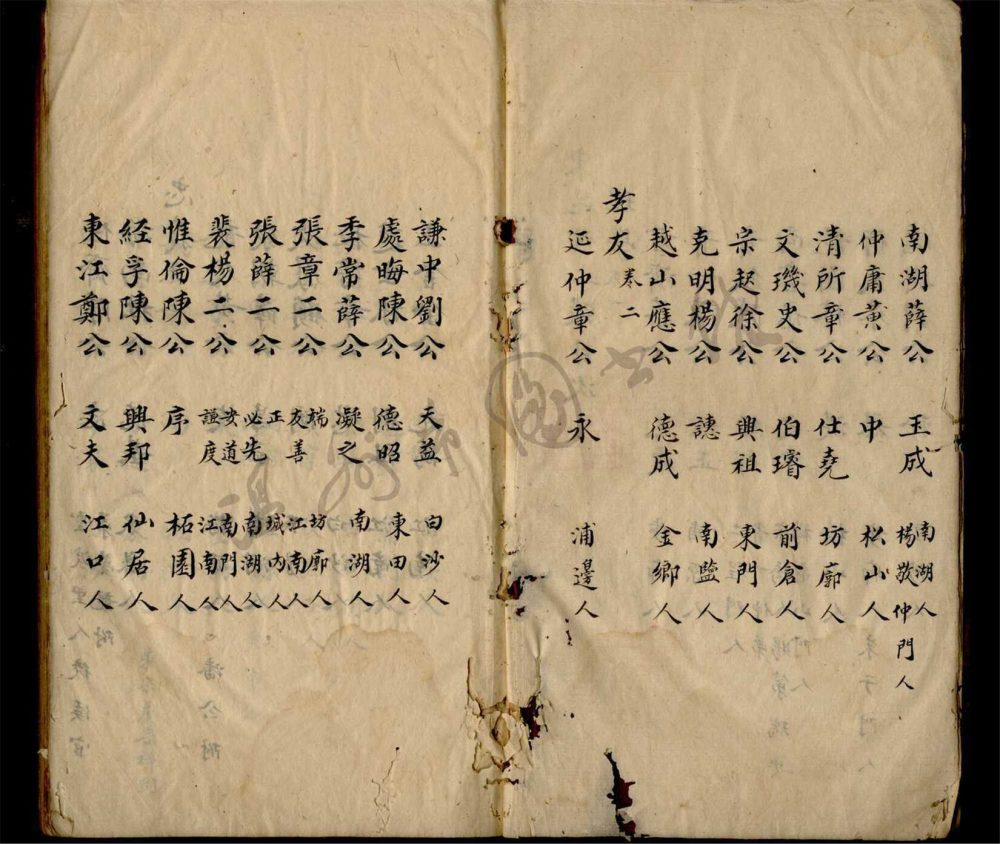 南湖薛公　玉成　南湖人楊敬仲門人
仲庸黃公　中　松山人
清所章公　仕堯　坊廓人
文璣史公　伯璿　前倉人
宗起徐公　興祖　東門人
克明楊公　譓　南監人
越山應公　德成　金鄉人
孝友卷二
延仲章公　永　浦邊人
謙中劉公　天益　白沙人
處晦陳公　德昭　東田人
季常薛公　凝之　南湖人
張章二公　端友善　坊廓人江南人
張薛二公　正必先　城内人南湖人
裴楊二公　安道謹度　南門人江南人
惟倫陳公　序　柘園人
經孚陳公　興邦　仙居人
東江鄭公　文夫　江口人